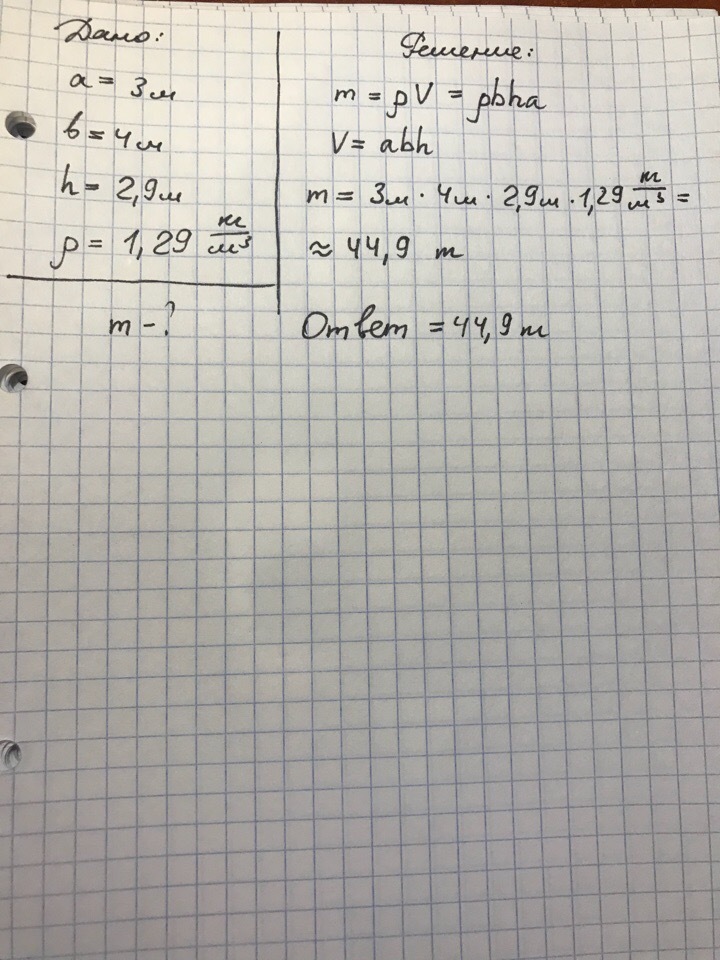 Дано:
a = 3м
b = 4м
h = 2,9м
ρ = 1,29 т/м³
m - ?
Решение:
m = ρV = ρbha
V = abh
m = 3м · 4м · 2,9м · 1,29 т/м³ =
≈ 44,9 т
Ответ = 44,9т